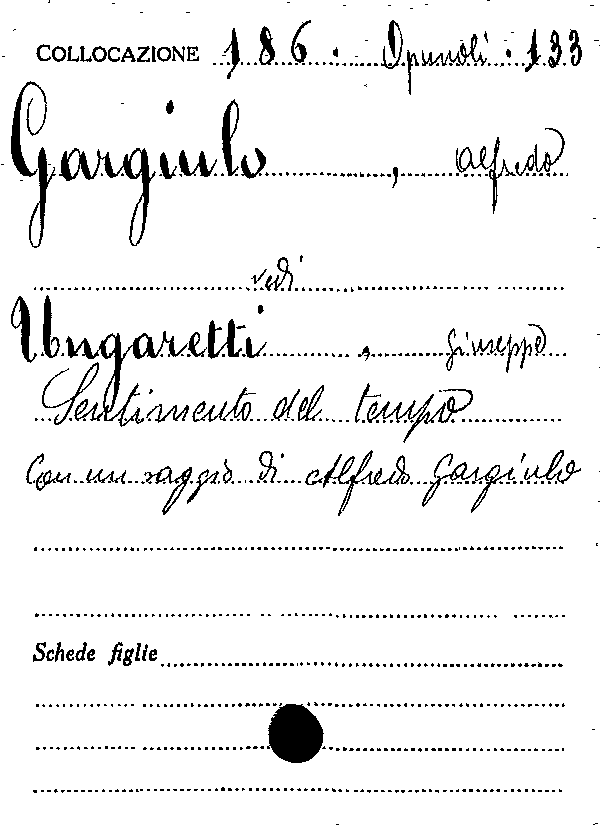 COLLOCAZIONE 186. Opuscoli. 133
Gargiulo, Alfredo
vedi
Ungaretti, Giuseppe
Sentimento del tempo
Con un saggio di Alfredo Gargiulo
Schede figlie